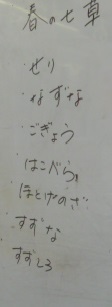 春の七草
・せり
・なずな
・ごぎょう
・はこべら
・ほとけのざ
・すずな
・すずしろ